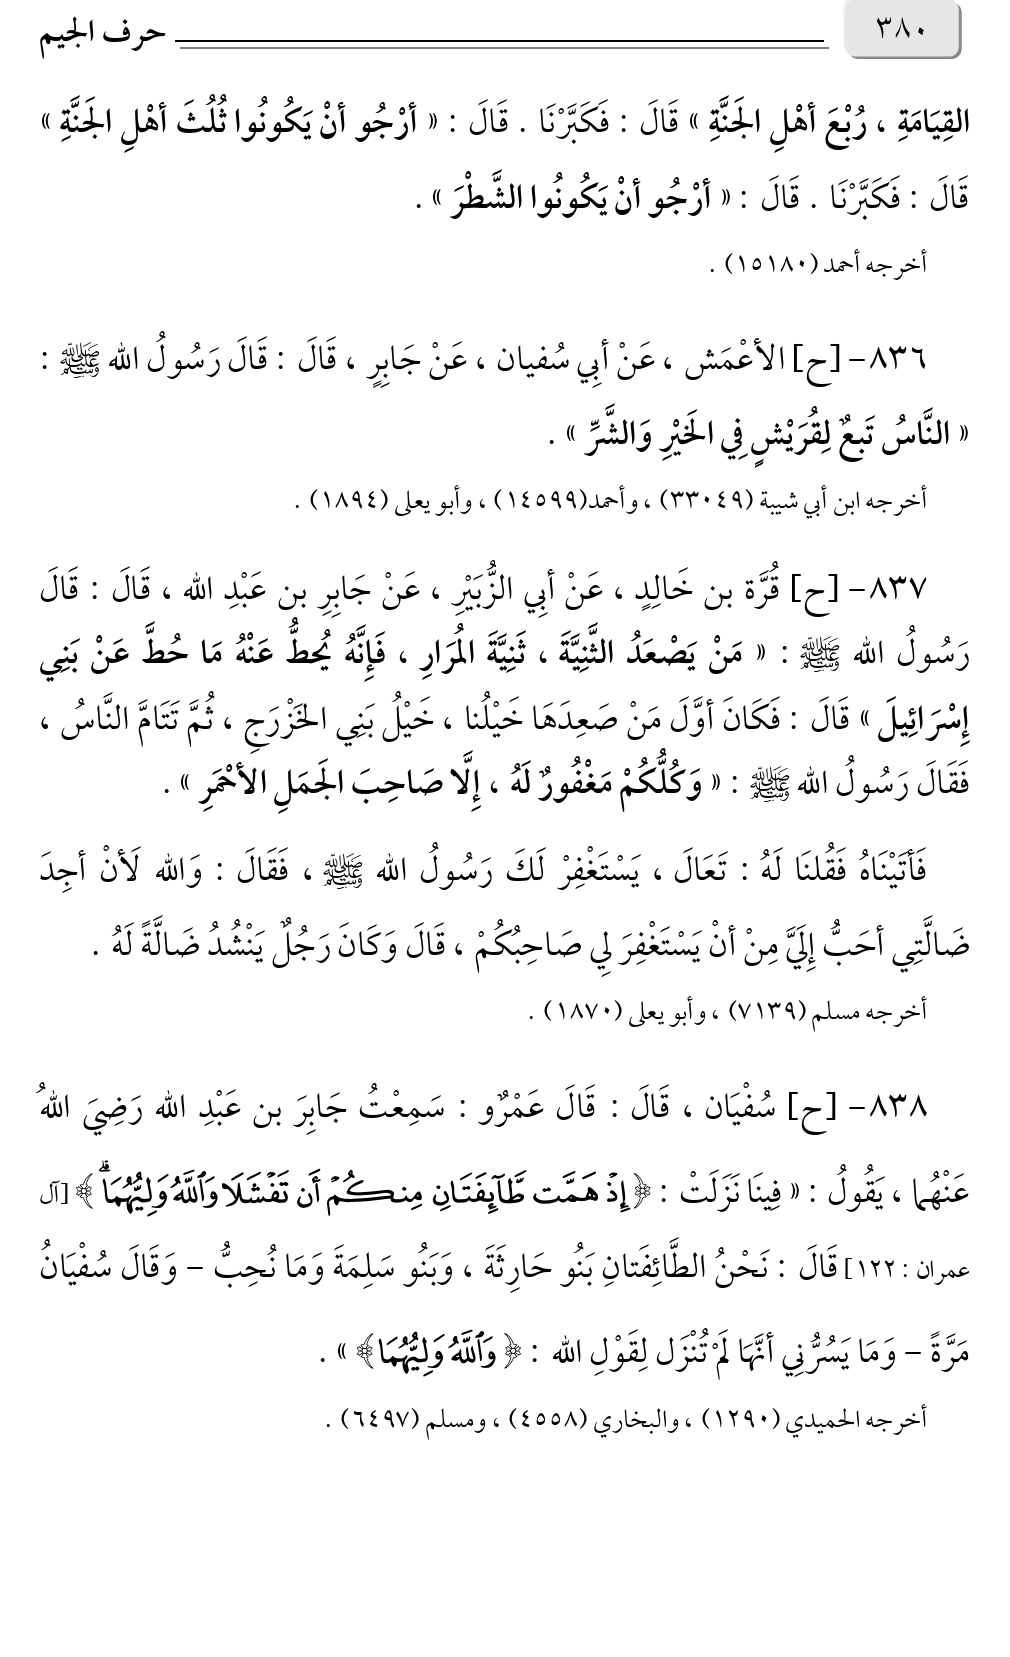 ٣٨٠ حرف الجيم
القِيَامَةِ ، رُبْعَ أهْلِ الجَنَّةِ » قَالَ : فَكَبَّرْنَا . قَالَ : « أرْجُو أنْ يَكُونُوا ثُلُثَ أهْلِ الجَنَّةِ »
قَالَ : فَكَبَّرْنَا . قَالَ : « أرْجُو أنْ يَكُونُوا الشَّطْرَ » .
أخرجه أحمد (١٥١٨٠) .
٨٣٦- [ح] الأعْمَش ، عَنْ أبِي سُفيان ، عَنْ جَابِرٍ ، قَالَ : قَالَ رَسُولُ الله ﷺ :
« النَّاسُ تَبعٌ لِقُرَيْشٍ فِي الخَيْرِ وَالشَّرِّ » .
أخرجه ابن أبي شيبة (٣٣٠٤٩) ، وأحمد(١٤٥٩٩) ، وأبو يعلى (١٨٩٤) .
٨٣٧- [ح] قُرَّة بن خَالِدٍ ، عَنْ أبِي الزُّبَيْرِ ، عَنْ جَابِرِ بن عَبْدِ الله ، قَالَ : قَالَ
رَسُولُ الله ﷺ : « مَنْ يَصْعَدُ الثَّنِيَّةَ ، ثَنِيَّةَ المُرَارِ ، فَإِنَّهُ يُحطُّ عَنْهُ مَا حُطَّ عَنْ بَنِي
إِسْرَائِيلَ » قَالَ : فَكَانَ أوَّلَ مَنْ صَعِدَهَا خَيْلُنا ، خَيْلُ بَنِي الخَزْرَجِ ، ثُمَّ تَتَامَّ النَّاسُ ،
فَقَالَ رَسُولُ الله ﷺ : « وَكُلُّكُمْ مَغْفُورٌ لَهُ ، إِلَّا صَاحِبَ الجَمَلِ الأحْمَرِ » .
فَأتَيْنَاهُ فَقُلنَا لَهُ : تَعَالَ ، يَسْتَغْفِرْ لَكَ رَسُولُ الله ﷺ ، فَقَالَ : وَالله لَأنْ أجِدَ
ضَالَّتِي أحَبُّ إِلَيَّ مِنْ أنْ يَسْتَغْفِرَ لِي صَاحِبُكُمْ ، قَالَ وَكَانَ رَجُلٌ يَنْشُدُ ضَالَّةً لَهُ .
أخرجه مسلم (٧١٣٩) ، وأبو يعلى (١٨٧٠) .
٨٣٨- [ح] سُفْيَان ، قَالَ : قَالَ عَمْرٌو : سَمِعْتُ جَابِرَ بن عَبْدِ الله رَضِيَ اللهُ
عَنْهُما ، يَقُولُ : « فِينَا نَزَلَتْ : ﴿إِذْ هَمَّت طَّآئِفَتَانِ مِنكُمْ أَن تَفْشَلَا وَٱللَّهُ وَلِيُّهُمَاۗ﴾ [آل
عمران : ١٢٢] قَالَ : نَحْنُ الطَّائِفَتانِ بَنُو حَارِثَةَ ، وَبَنُو سَلِمَةَ وَمَا نُحِبُّ – وَقَالَ سُفْيَانُ
مَرَّةً – وَمَا يَسُرُّنِي أنَّهَا لَمْ تُنْزَل لِقَوْلِ الله : ﴿وَٱللَّهُ وَلِيُّهُمَا﴾ » .
أخرجه الحميدي (١٢٩٠) ، والبخاري (٤٥٥٨) ، ومسلم (٦٤٩٧) .